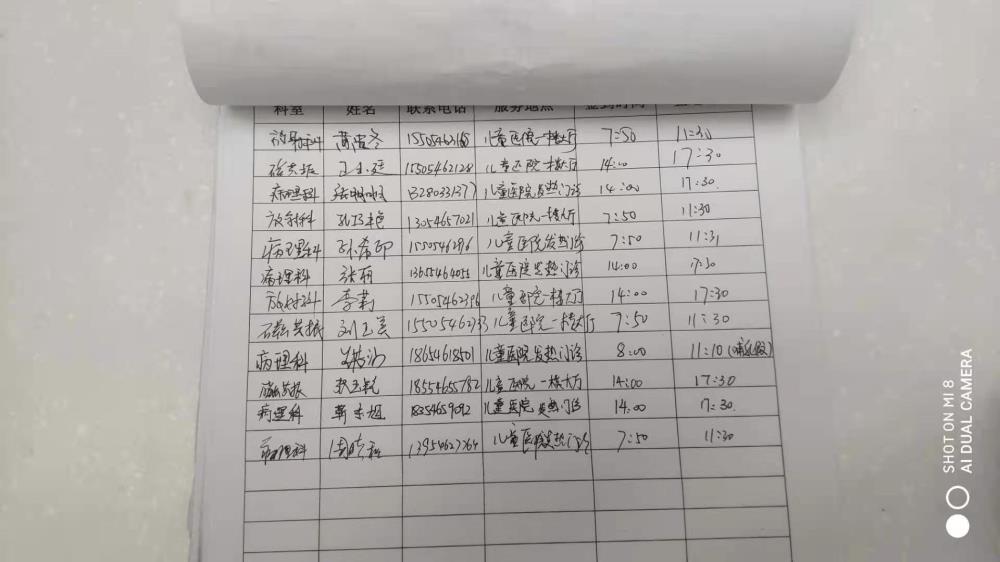 科室 姓名 联系电话 服务地点 签到时间
放射科 15505463165 儿童医院一楼大厅 7:50 11:30
磁共振 15505462128 儿童医院一楼大厅 14:00 17:30
病理科 张明明 13280331377 儿童医院发热门诊 14:00 17:30
放射科 13054657021 儿童医院一楼大厅 7:50 11:30
病理科 1550546296 儿童医院发热诊 7:50 11:31
病理科 张丽 13655464055 儿童医院发热门诊 14:00 17:30
放射科 李莉 15505462396 儿童医院一楼大厅 14:00 17:30
磁共振 刘玉美 15505462733 儿童医院一楼大厅 7:50 11:30
病理科 18654618501 儿童医院发热门诊 8:00 11:10(哺乳假)
磁共振 18554655782 儿童医院一楼大厅 14:00 17:30
病理科 18354659092 儿童医院发热门诊 14:00 17:30
病理科 13954627764 儿童医院发热门诊 7:50 11:30
SHOT ON MI 8
AI DUAL CAMERA